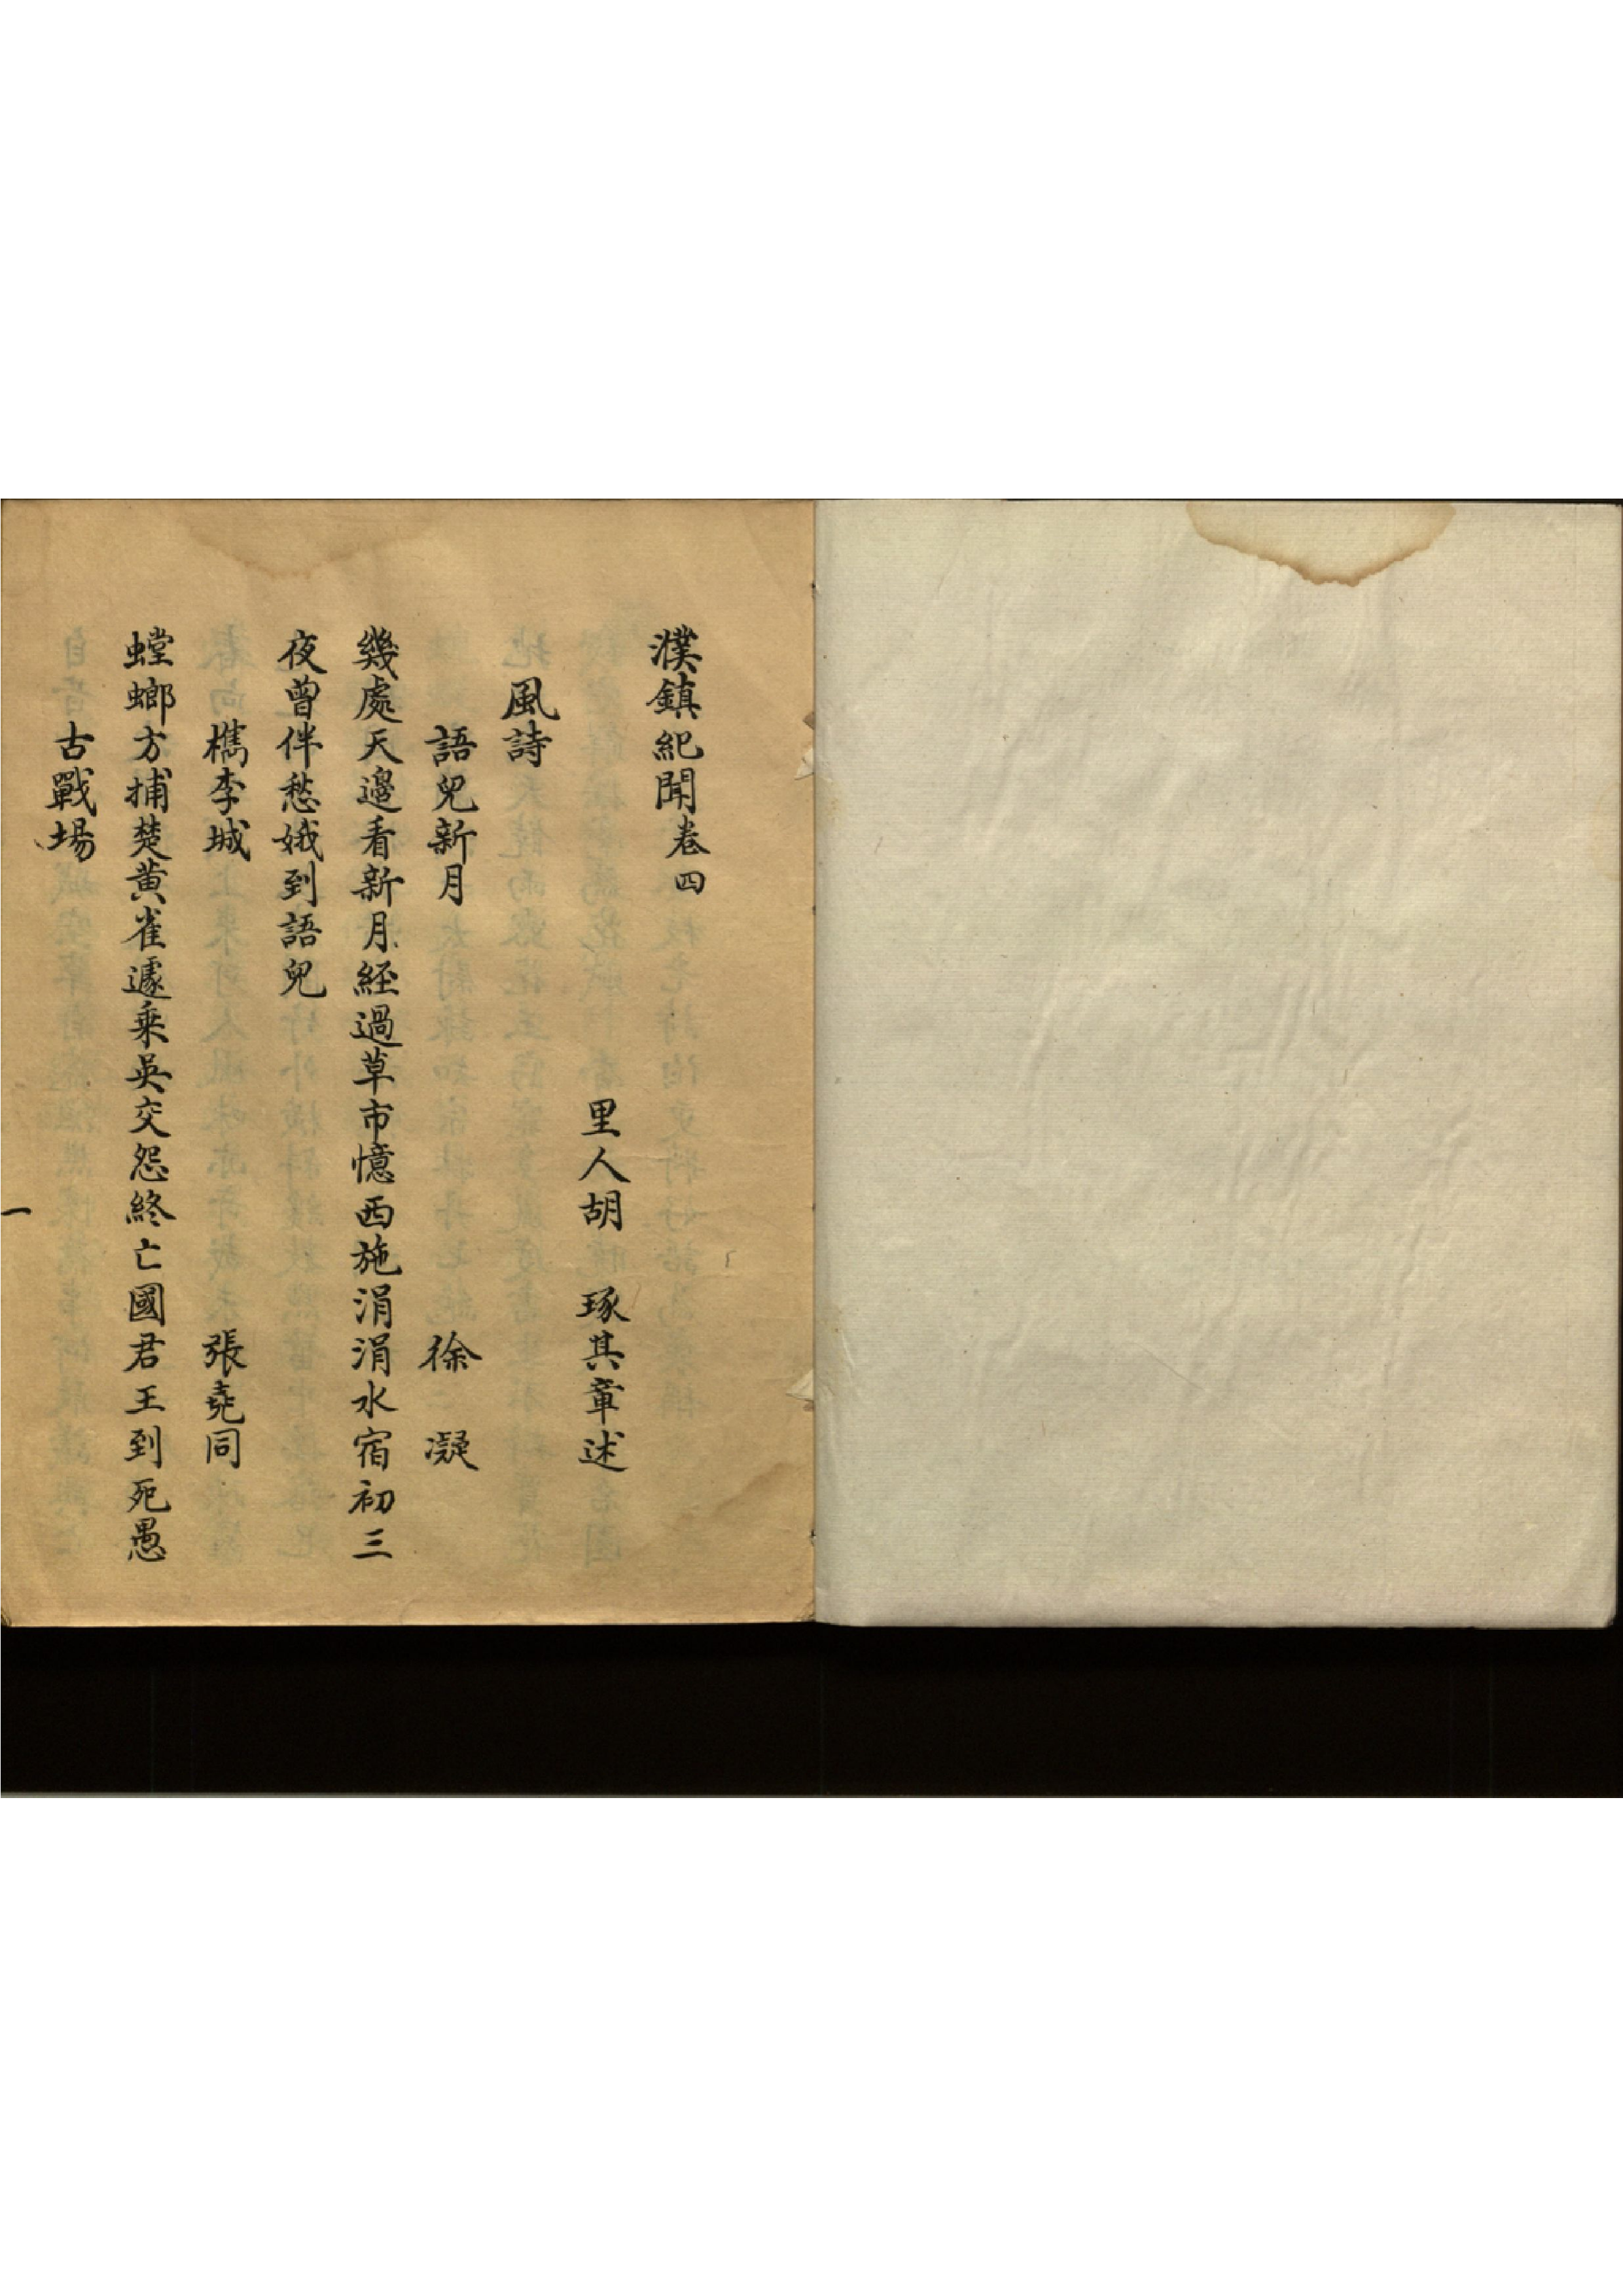 濮鎮紀聞卷四
里人胡　琢其章述
風詩
語兒新月　徐　凝
幾處天邊看新月經過草市憶西施涓涓水宿初三
夜曾伴愁娥到語兒
檇李城　張堯同
螳螂方捕楚黄雀遽乗吳交怨終亡國君王到死愚
古戰場
一